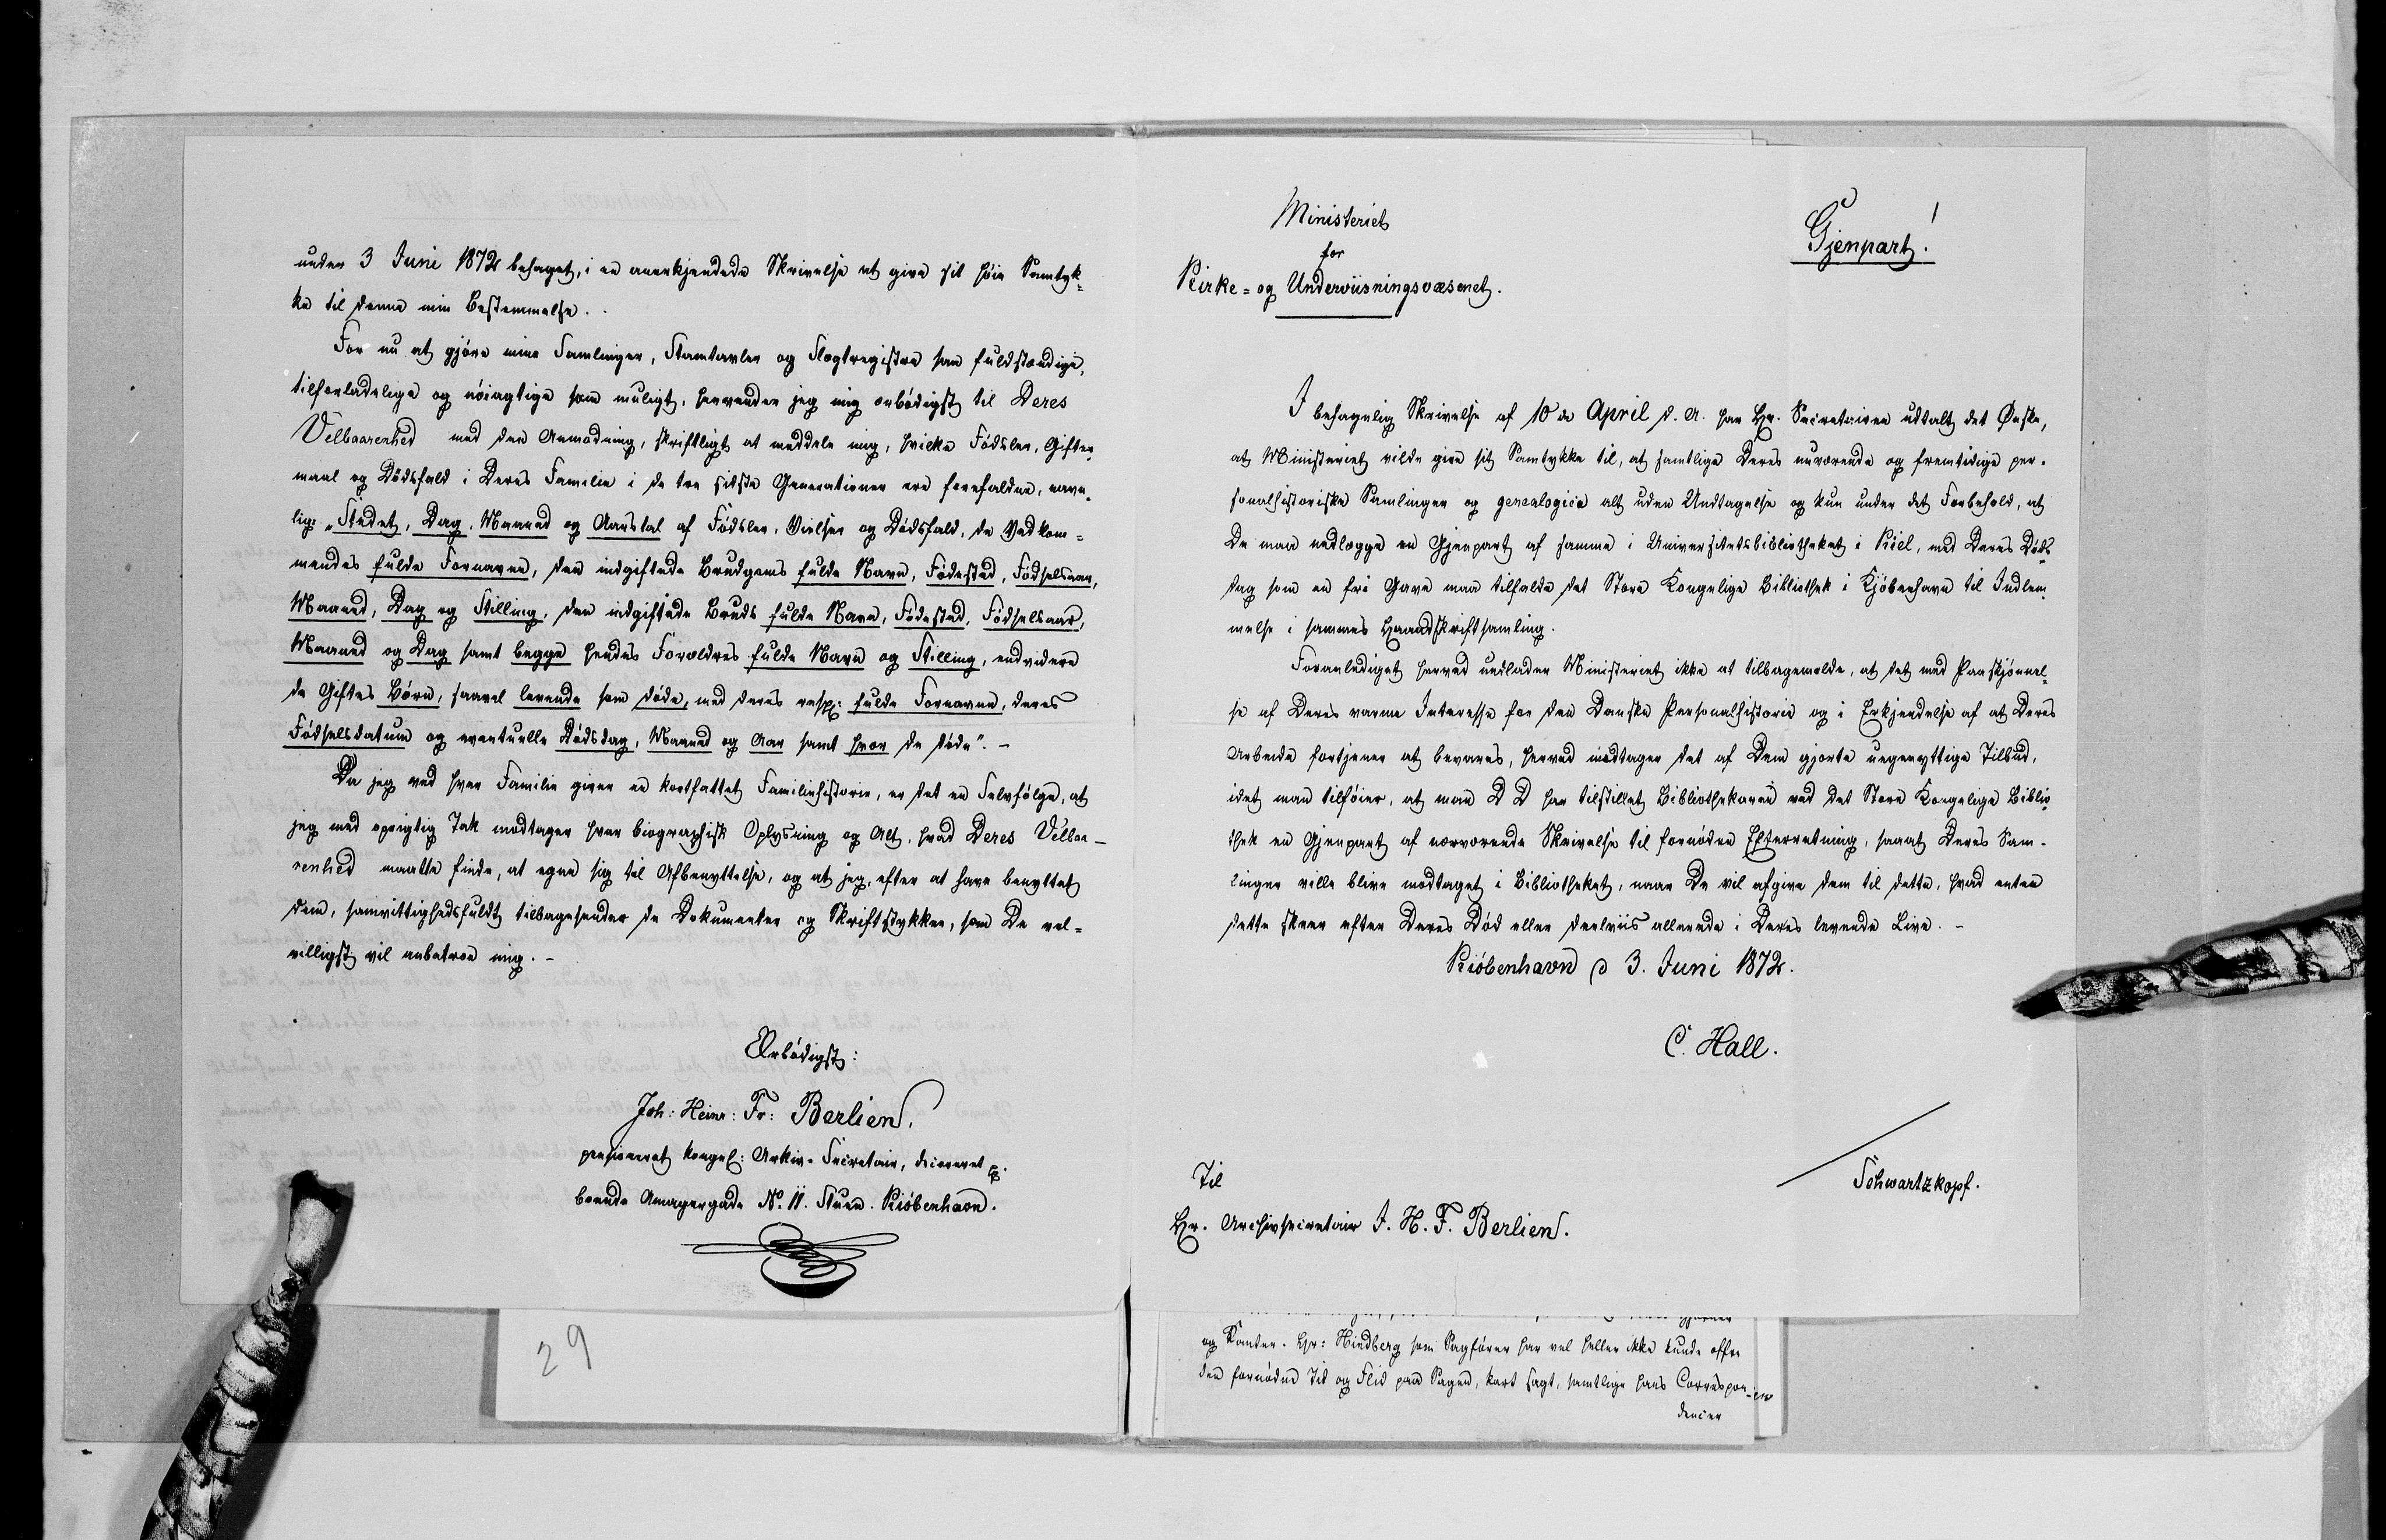 under 3 Juni 1872 behaget, i en anerkjendende Skrivelse at give sit høie Samtyk=
ke til denne min Bestemmelse.
For nu at gjøre mine Samlinger, Stamtavler og Slægtregistre saa fuldstændige,
tilforladelige og nøiagtige som muligt, henvender jeg mig ærbødigst til Deres
Velbaarenhed med den Anmodning, skriftligt at meddele mig, hvilke Fødsler, Gifter-
maal og Dødsfald i Deres Familie i de tre sidste Generationer ere forefaldne, navn-
lig: „Stedet, Dag, Maaned og Aarstal af Fødsler, Vielser og Dødsfald, de Vedkom=
mendes fulde Fornavne, den indgiftede Brudgoms fulde Navn, Fødested, Fødselsaar,
Maaned, Dag og Stilling, den indgiftede Bruds fulde Navn, Fødested, Fødselsaar,
Maaned og Dag samt begge hendes Forældres fulde Navn og Stilling, endvidere
de Giftes Børn, saavel levende som døde, med deres resp: fulde Fornavne, deres
Fødselsdatum og eventuelle Dødsdag, Maaned og Aar samt hvor de døde". –
Da jeg ved hver Familie giver en kortfattet Familiehistorie, er det en Selvfølge, at
jeg med oprigtig Tak modtager hver biographisk Oplysning og Alt, hvad Deres Velbaa–
renhed maatte finde, at egne sig til Afbenyttelse, og at jeg, efter at have benyttet
dem, samvittighedsfuldt tilbagesender de Dokumenter og Skriftstykker, som De vel=
villigst vil anbetroe mig. –
Ærbødigst:
Joh: Heinr: Fr: Berlien.
pensioneret kongel: Arkiv-Secretair, decoreret p.
boende Amagergade No. 11. Stuen. Kiöbenhavn.
29
Ministeriet
for
Kirke= og Underviisningsvæsenet.
Gjenpart!
I behagelig Skrivelse af 10de April d. A. har Hr. Secretairen udtalt det Ønske,
at Ministeriet vilde give sit Samtykke til, at samtlige Deres nuværende og fremtidige per-
sonalhistoriske Samlinger og genealogica alt uden Undtagelse og kun under det Forbehold, at
De maa nedlægge en Gjenpart af samme i Universitetsbibliotheket i Kiel, med Deres Døds
dag som en fri Gave maa tilfalde det Store Kongelige Bibliothek i Kjøbenhavn til Indlem
melse i sammes Haandskriftsamling.
Foranlediget herved undlader Ministeriet ikke at tilbagemelde, at det med Paaskjønnel-
se af Deres varme Interesse for den Danske Personalhistorie og i Erkjendelse af at Deres
Arbeide fortjener at bevares, herved modtager det af Dem gjorte uegennyttige Tilbud,
idet man tilføier, at man D D har tilstillet Bibliothekaren ved det Store Kongelige Biblio
thek en Gjenpart af nærværende Skrivelse til fornøden Efterretning, saaat Deres Sam-
linger ville blive modtaget i Bibliotheket, naar De vil afgive dem til dette, hvad enten
dette skeer efter Deres Død eller deelviis allerede i Deres levende Live. –
Kiöbenhavn d 3. Juni 1872.
C. Hall.
Schwartzkopf.
Til
Hr. Archivsecretair J. H. F. Berlien.
og Kanter. Hr: Hindberg som Sagfører har vel heller ikke kunde offre
den fornødne Tid og Flid paa Sagen, kort sagt, samtlige hans Correspon-
dencier